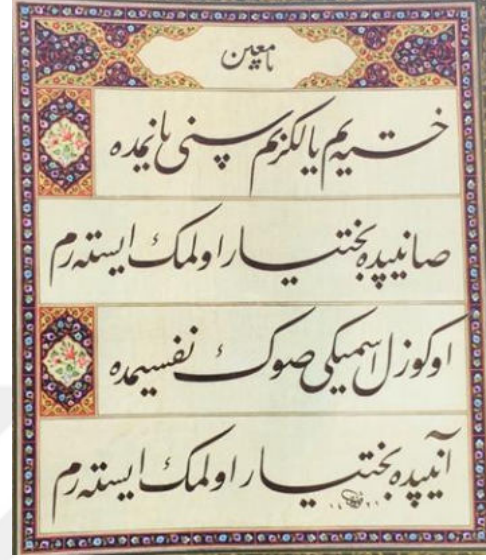 یا معین
خسته یم یالکزم سنی یانیمده
صانیپده بختیار اولمک ایسته رم
او کوزل اسمیکی صوک نفسیمده
آنیپده بختیار اولمک ایسته رم